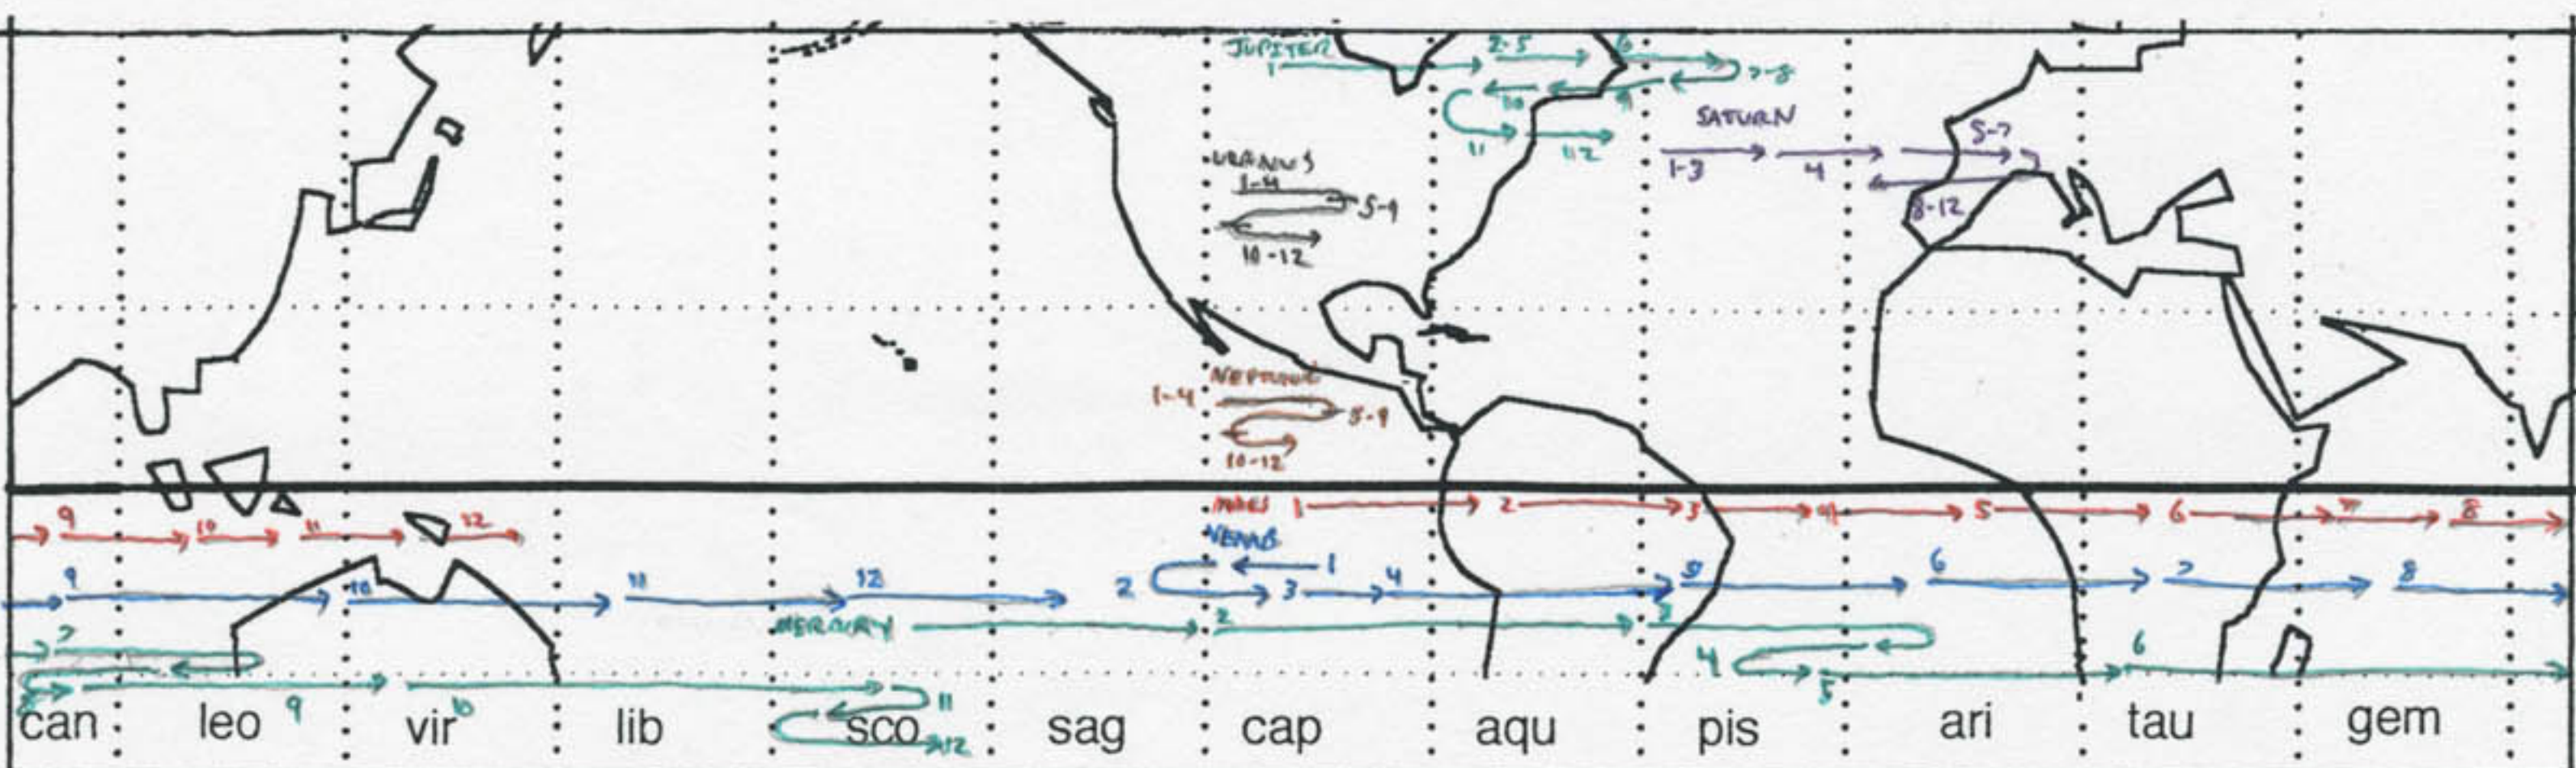 JUPITER 1 2-5 6
7-8
10 9
11 112
SATURN
5-7
1-3 4
8-12
URANUS
1-4
5-9
10-12
NEPTUNE
1-4 5-9
10-12
MARS 1 2 3 4 5 6 7 8
9 10 11 12
VENUS
1
9 10 11 12 2 3 4 5 6 7 8
MERCURY 2 3
7 4 5 6
8 9 10 11
12
can leo vir lib sco sag cap aqu pis ari tau gem